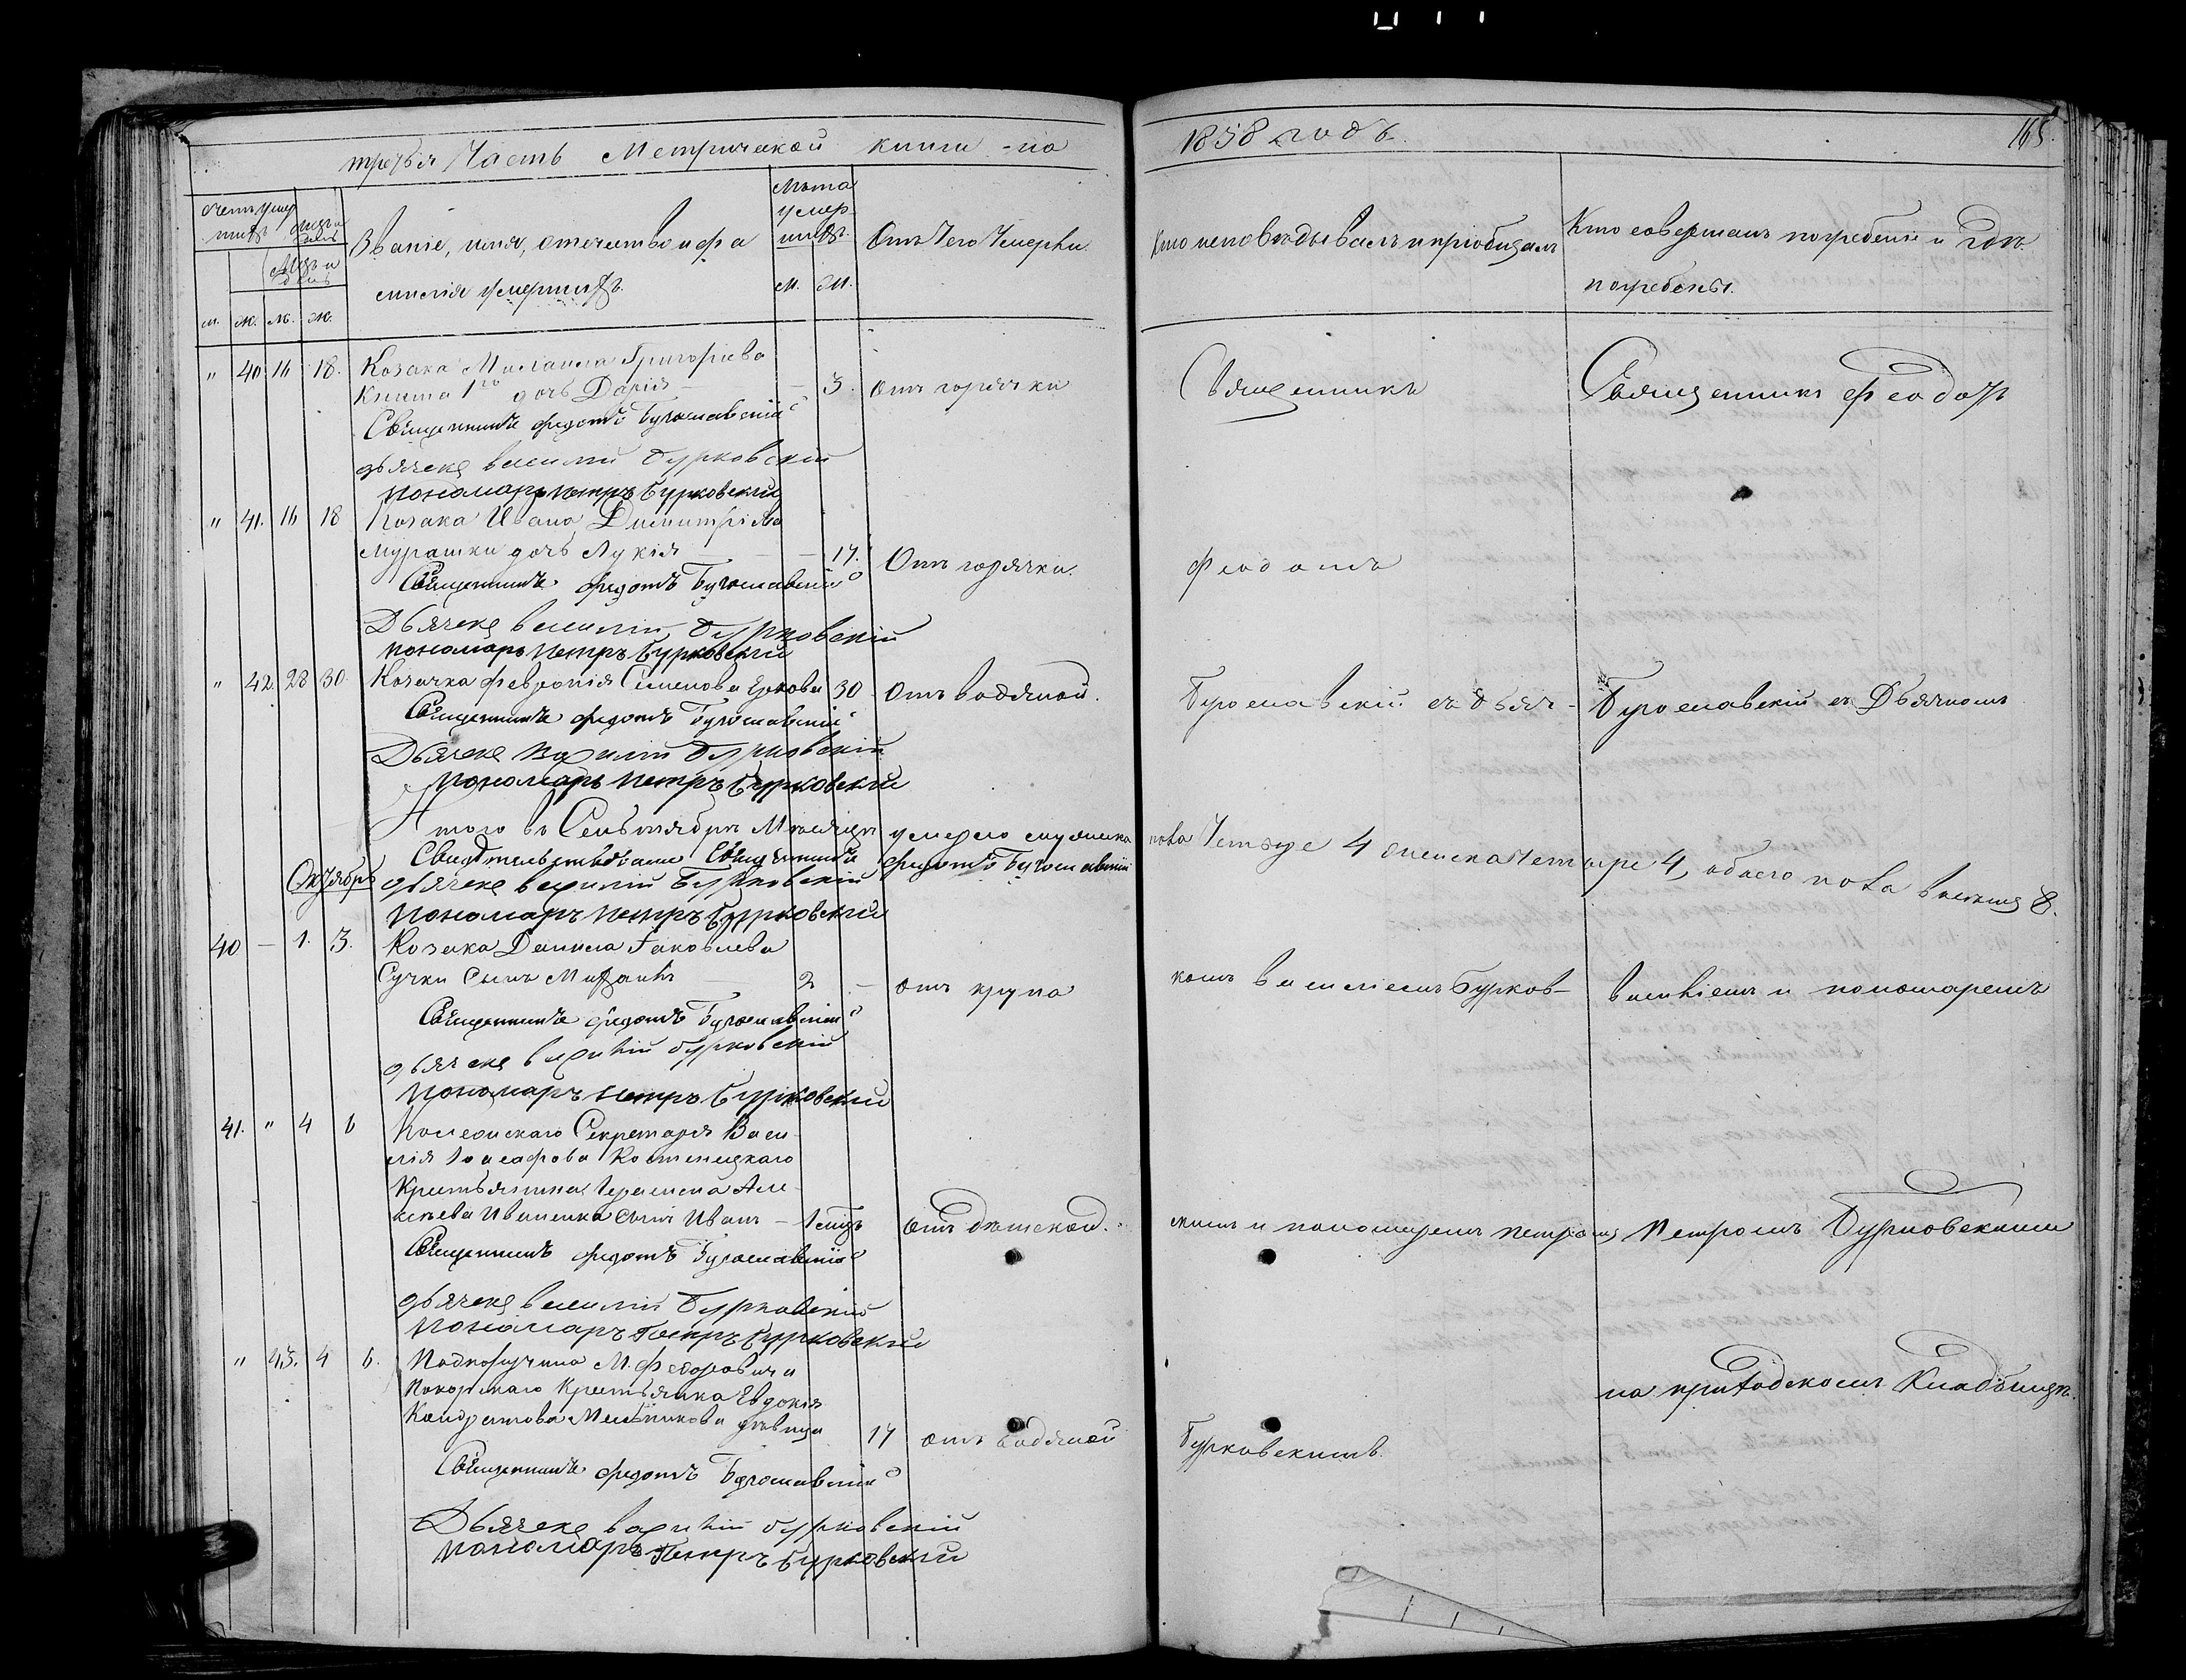 третья Часть Метрической книги на
1858 годъ.
165.
Счетъ умер
шихъ
Мѣсяцъ и день
Званіе, имя, отчество и фа
милія умершихъ.
Лѣта
умер
шихъ.
Отъ Чего Умерли.
Кто исповѣдывалъ и пріобщалъ
Кто совершалъ погребеніе и гдѣ
погребены.
м. ж. м. ж.
м. ж.
" 40. 16 18. Козака Михаила Григорьева
дочь Дарія — 3. отъ горячки
Священникъ Федотъ Богославскій
дьячекъ Василій Бурковскій
пономарь Петръ Бурковскій
" 41. 16 18 Козака Ивана Димитріева
Мурашки дочь Лукія — — 17. Отъ горячки.
Священникъ Федотъ Богославскій
Дьячекъ Василій Бурковскій
пономарь Петръ Бурковскій
" 42. 28 30 Козачка Февронія Семенова 30 Отъ водяной.
Священникъ Федотъ Богославскій
Дьячекъ Василій Бурковскій
пономарь Петръ Бурковскій
Итого въ Сентябрѣ Мѣсяцѣ умерло мужеска пола Четыре 4 женска четыре 4, обоего пола восемь 8.
Свидѣтельствовали Священникъ Федотъ Богославскій
Октябрь дьячекъ Василій Бурковскій
пономарь Петръ Бурковскій
40 — 1. 3. Козака Даніила Іаковлева
Сучки Сынъ Михаилъ — 2 — отъ крупа
Священникъ Федотъ Богославскій
дьячекъ Василій Бурковскій
пономарь Петръ Бурковскій
41. " 4 6 Колежскаго Секретаря Васи
лія Іоасафова Костенецкаго
Крестьянина Герасима Але
ксѣева сынъ Иванъ — 1 мѣсъ отъ дѣтской.
Священникъ Федотъ Богославскій
дьячекъ Василій Бурковскій
Пономарь Петръ Бурковскій
" 43. 4 6. Подпоручика М. Федоровича
Крестьянка Евдокія
Кондратова Мельникова дѣвица 17 отъ водяной
Священникъ Федотъ Богославскій
Дьячекъ Василій Бурковскій
пономарь Петръ Бурковскій
Священникъ
Феодотъ
Богославскій съ дьяч-
комъ Василіемъ Бурков-
скимъ и пономаремъ Петромъ
Бурковскимъ.
Священникъ Феодотъ
Богославскій съ Дьячкомъ
Василіемъ и пономаремъ
Петромъ Бурковскими
на приходскомъ Кладбищѣ.